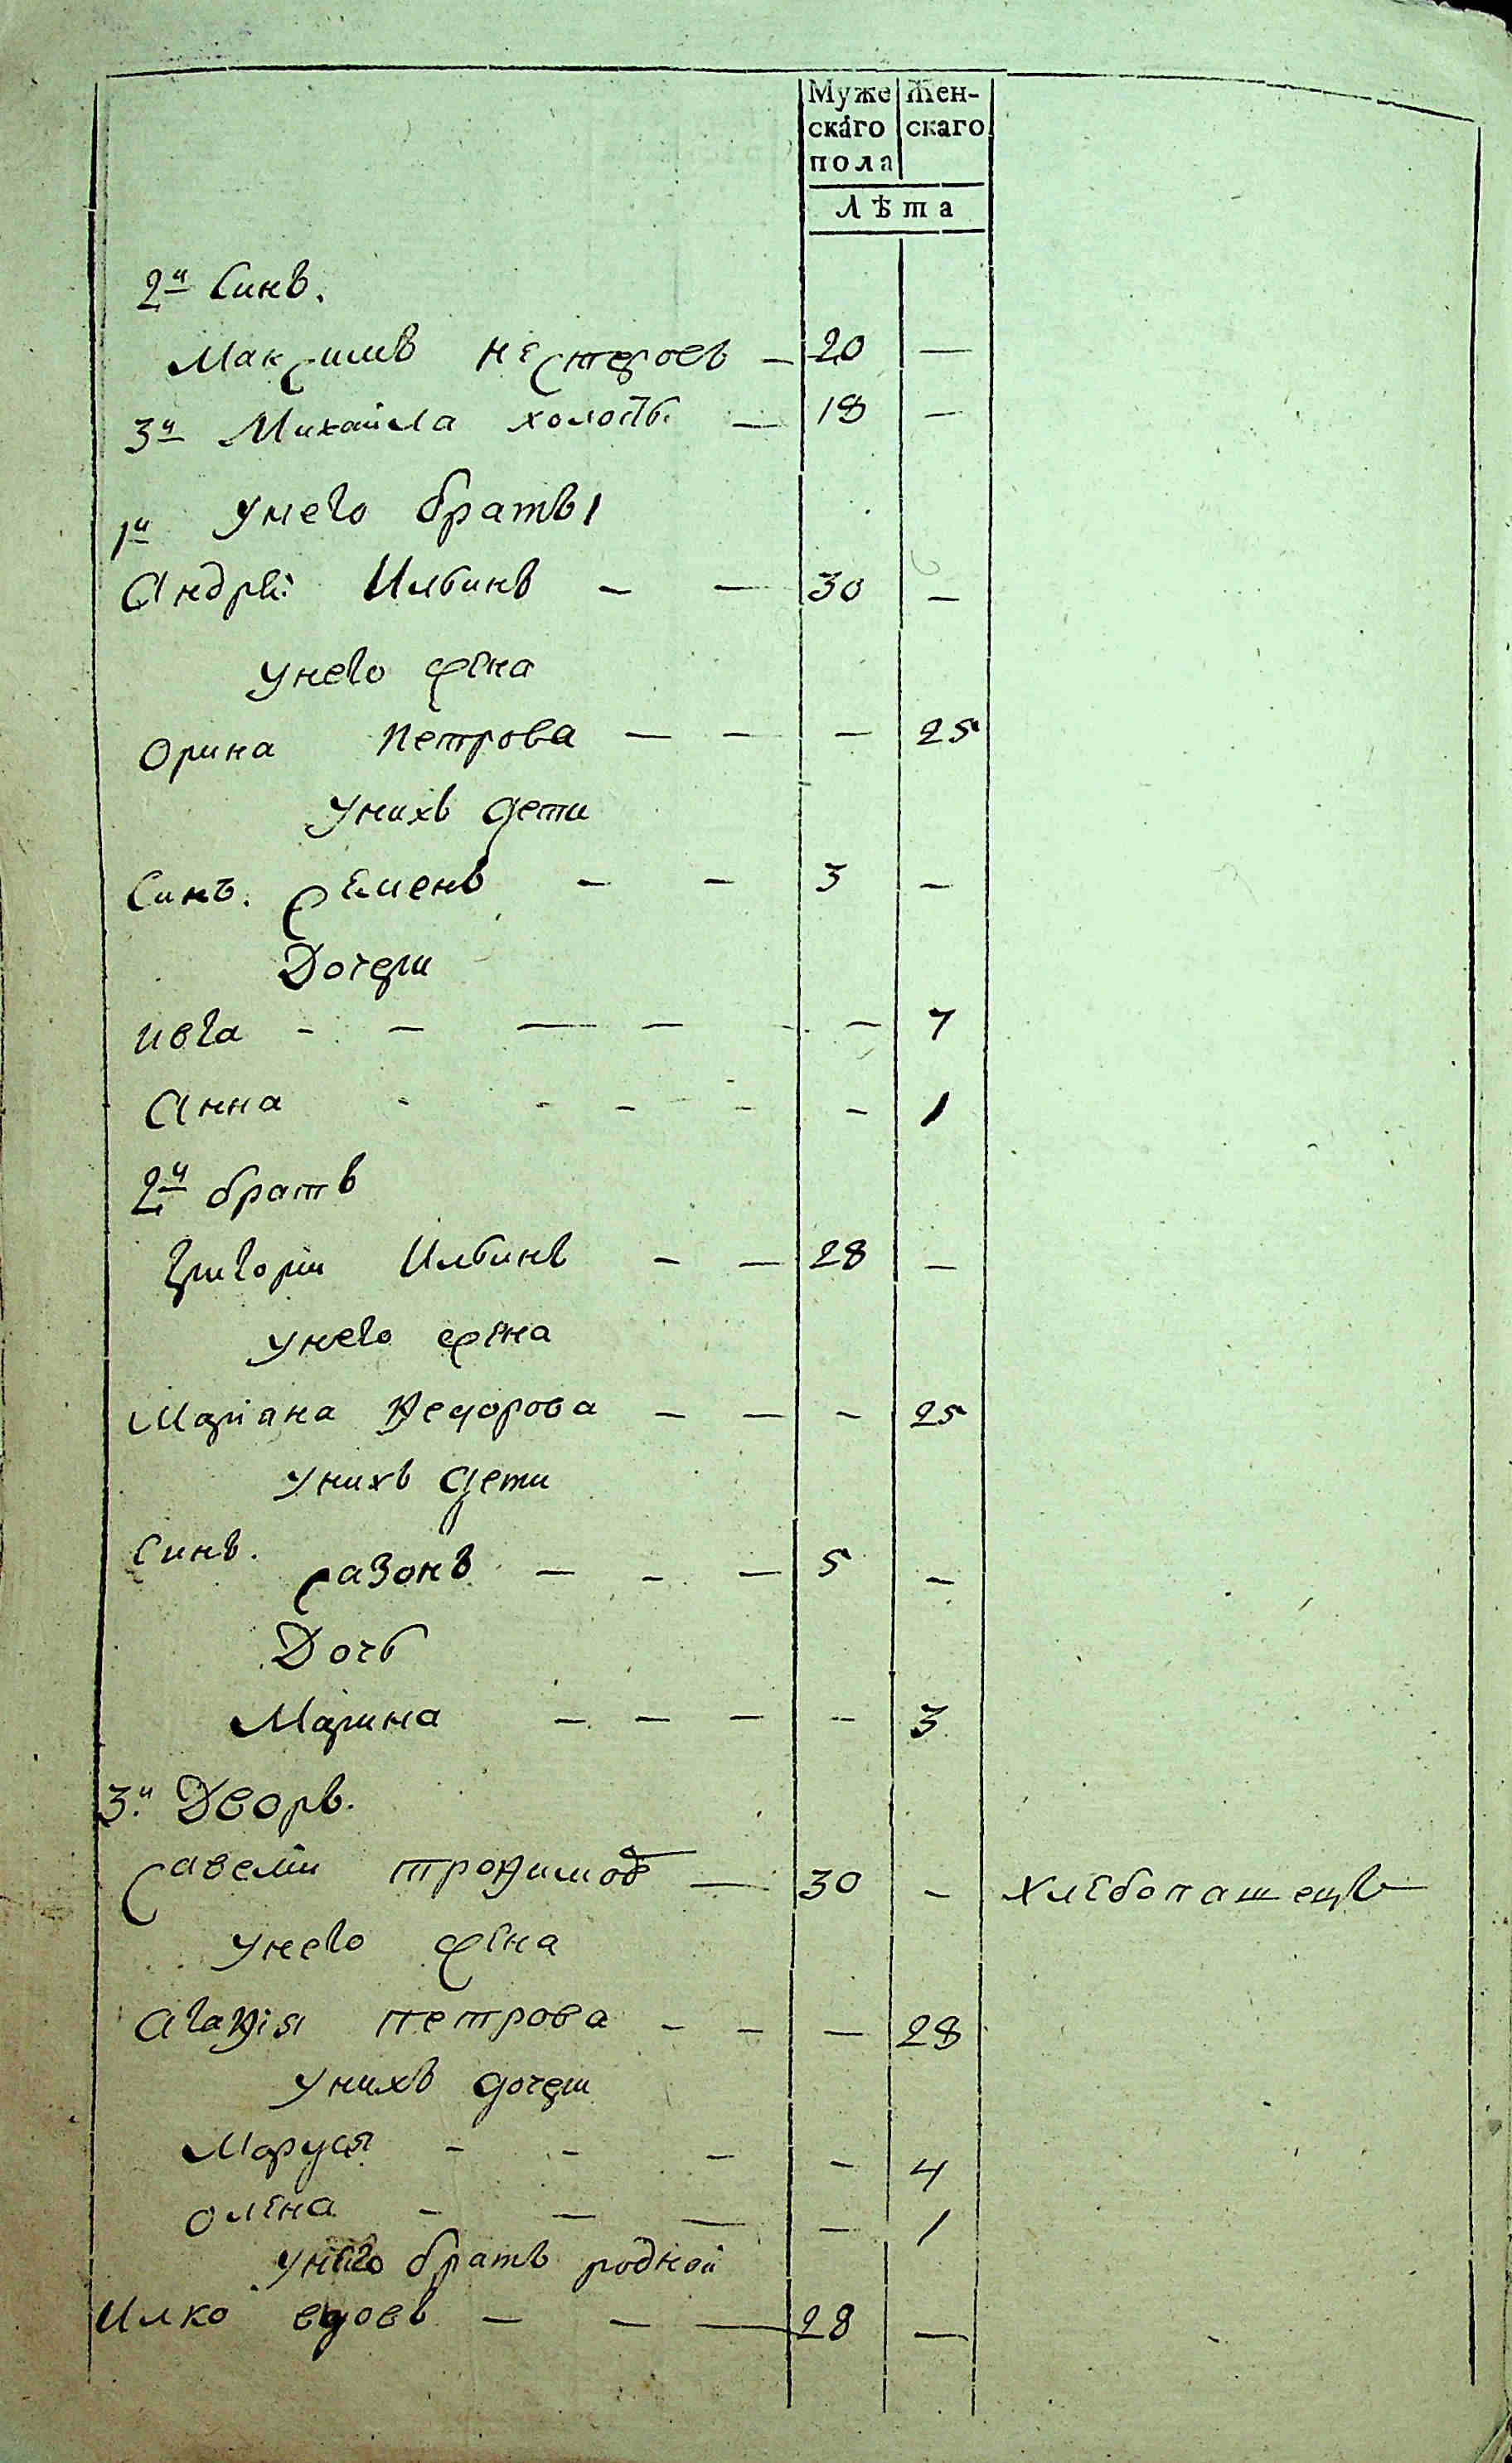 Муже Жен-
скаго скаго
пола
Лѣта
2й Синъ.
Максимъ Нестеровъ — 20 —
3й Михайла холостъ — 18 —
1й Унего братъı
Андрѣй Илбинъ — — 30 —
Унего жена
Орина Петрова — — — 25
Унихъ дети
Синъ. Семенъ — — 3 —
Дочери
Ивга - — — — — 7
Анна - - - - - 1
2й братъ
Григорій Илбинъ — — 28 —
Унего жена
Маріана Федорова — — - 25
Унихъ дети
Синъ. Сазонъ — - — 5 —
Дочь
Марина — — — - 3
3й Дворъ.
Савелій Трофимовъ — 30 - Хлебопашецъ
Унего жена
Агафія Петрова - — — 28
Унихъ дочери
Маруся - - — - 4
Олена — — — — 1
Унего братъ родной
Илко вдовъ — — — 28 —